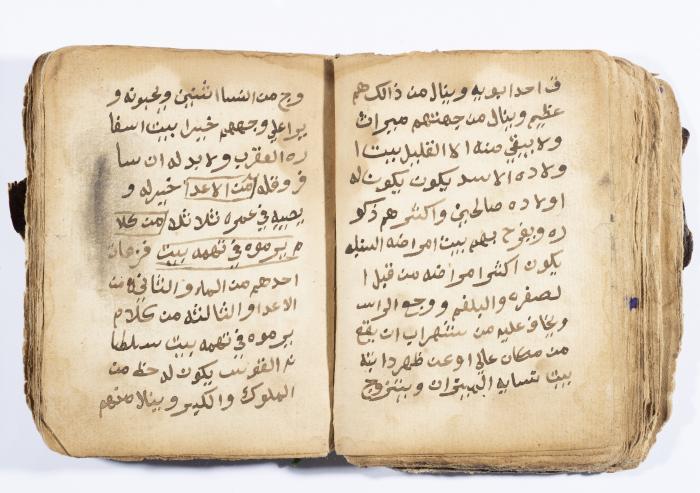 في احد ابويه وينال من ذالك هم
عظيم وينال من جهتهم ميراث
ولا يبقي منه الا القليل بيت ا
ولاده الاسد يكون يكون له
اولاده صالحين واكثرهم ذكو
ره ويفرح بهم بيت امراضه السنبله
يكون اكثر امراضه من قبل ا
لصفره والبلغم ووجع الراس
ويخاف عليه من شهراب ان يقع
من مكان عالي او عن ظهر دابته
بيت نسايه الميزان ويتزوج
وج من النسا اثنتين ويحبونه و
يرا علي وجههم خيرا بيت اسفا
ره العقرب ولا بد له ان سا
فر وقله من الاعدا خير له و
يصيبه في عمره ثلاثه من كلا
م يرموه في تهمه بيت فزعات
احدهم من الماء والثاني من
الاعدا والثالثه من كلام
يرموه في تهمه بيت سلطا
نه القوس يكون له حظ من
الملوك والكبر وينلا منهم